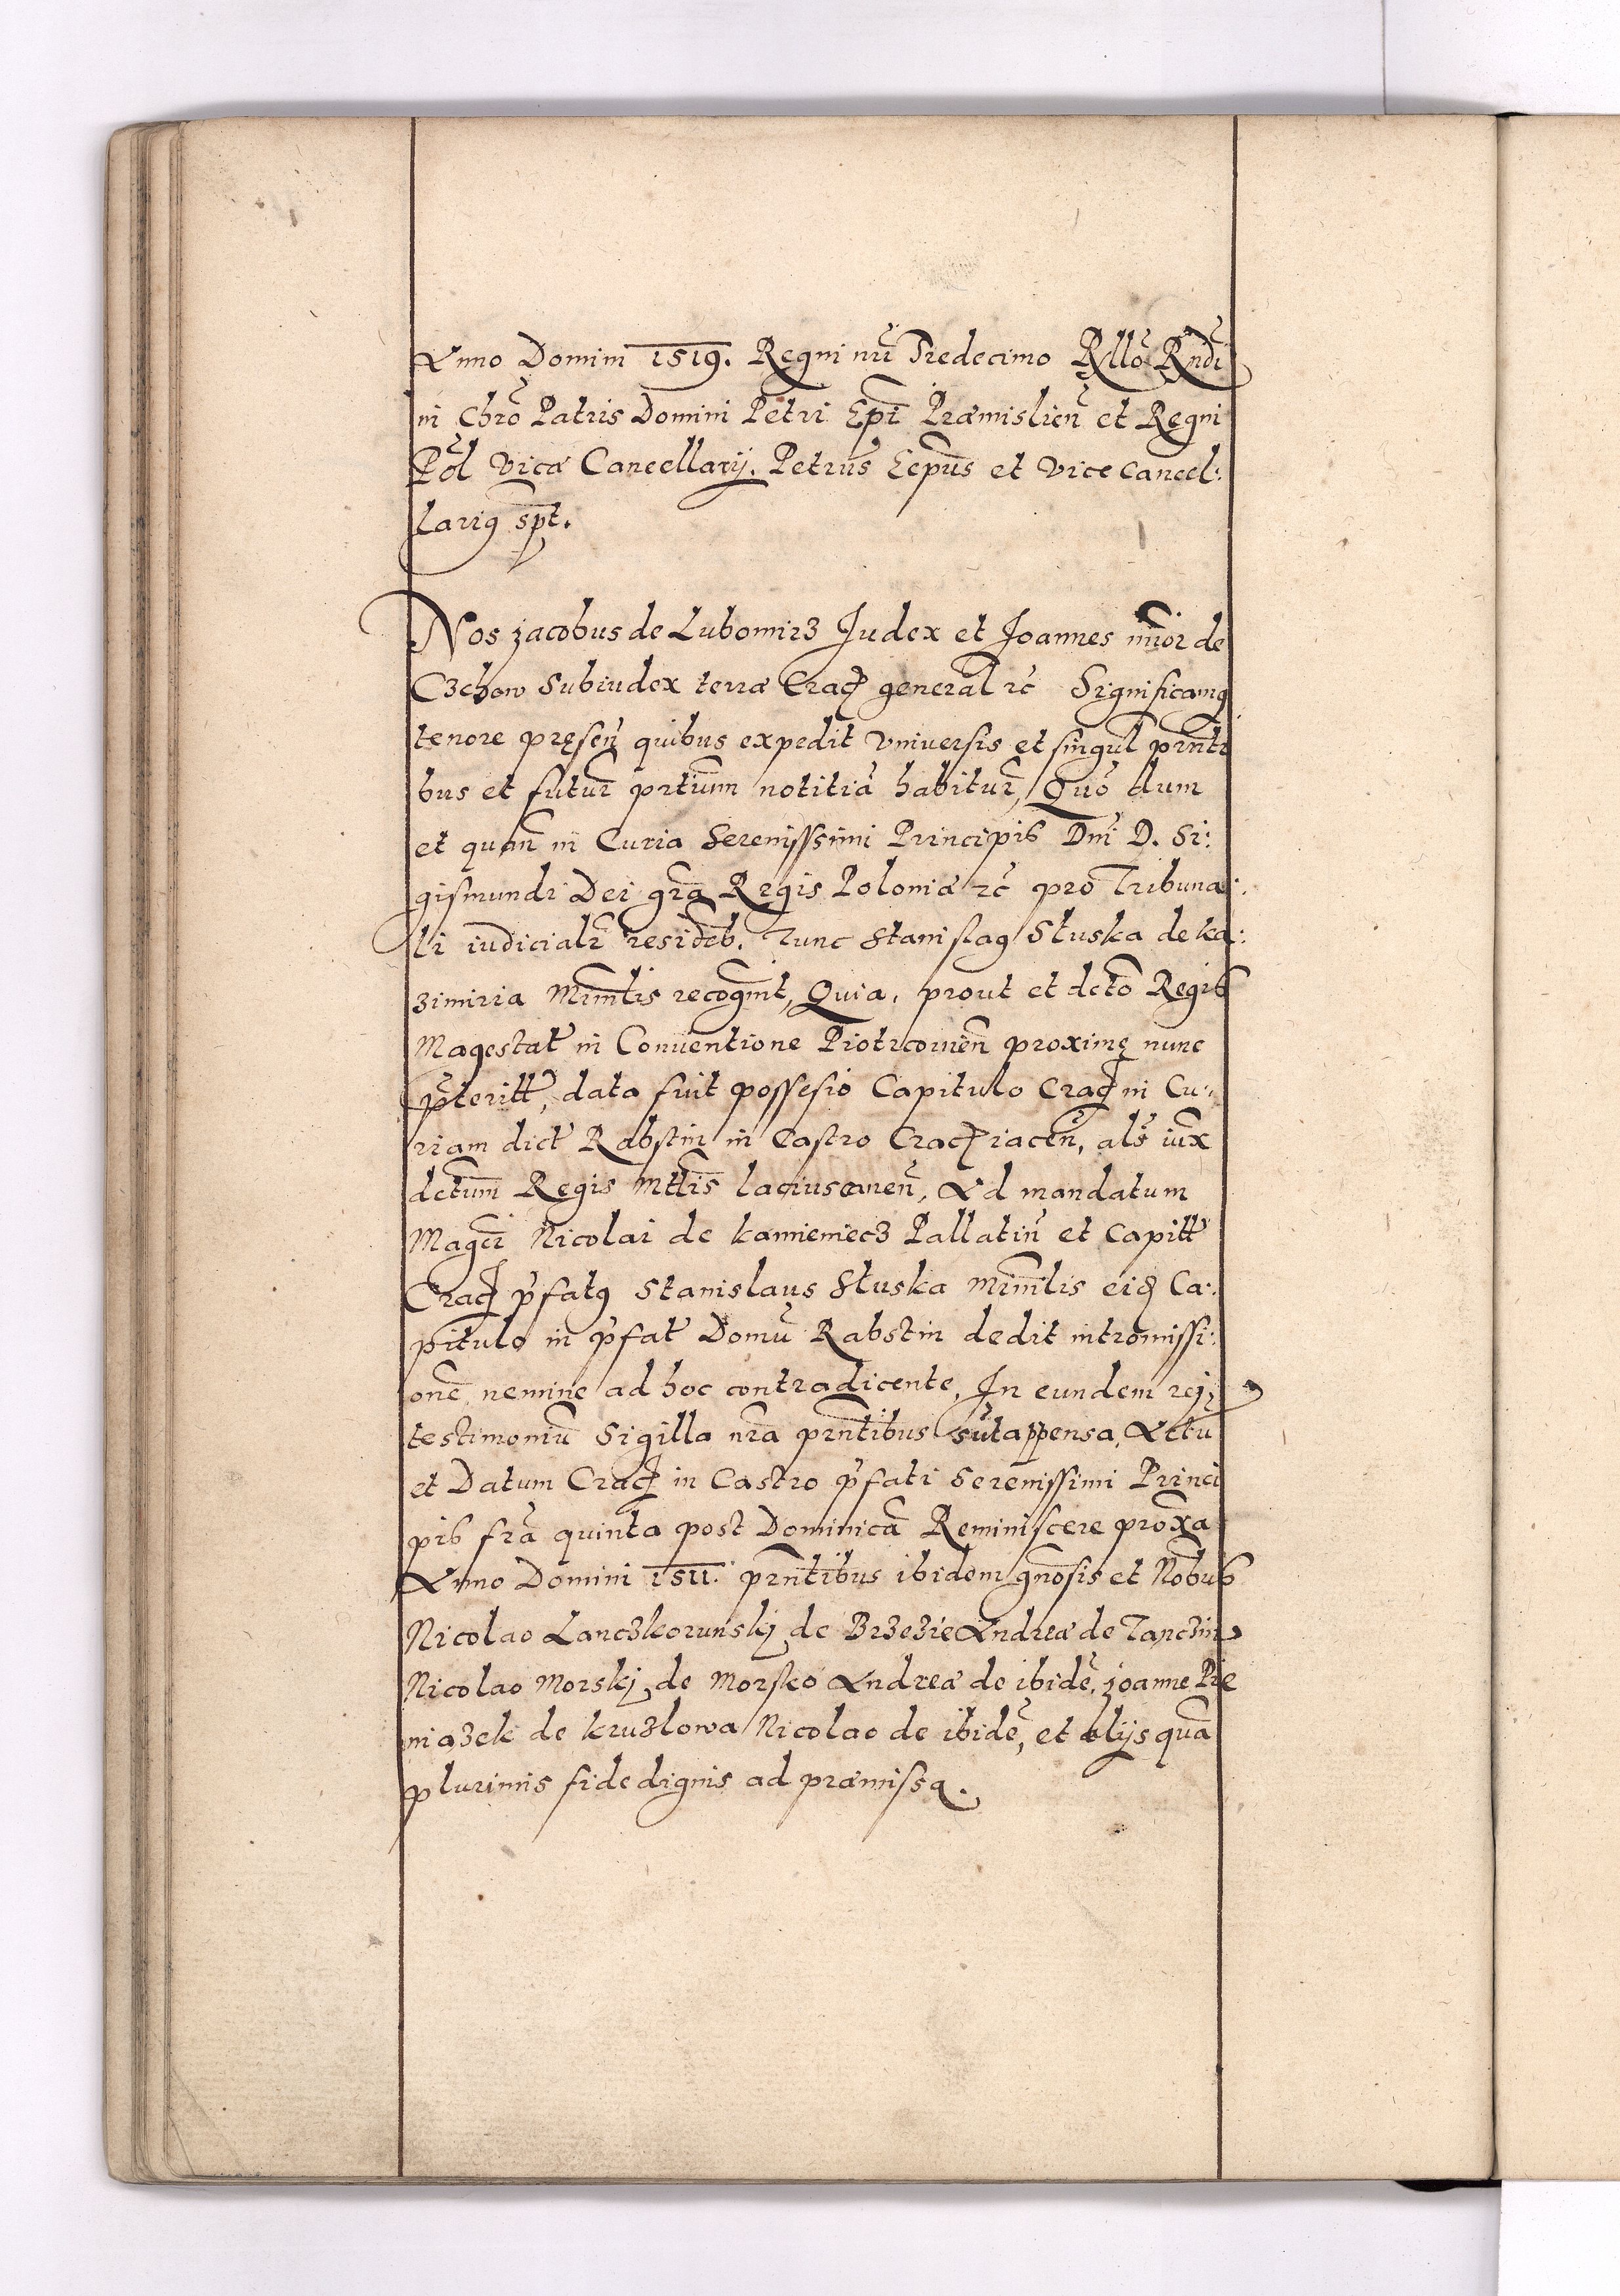 Anno Domini 1519. Regni nrĩ Tredecimo Rllõ Rndi
in Chrõ Patris Domini Petri Epĩ Præmislieñ et Regni
Pol Vicæ Cancellarij. Petrus Eepus et Vice Cancel:
lariꝰ spt.
Nos Jacobus de Lubomirz Judex et Joannes miior de
Czchow Subiudex terræ Crac general ꝛc̃ Significamꝰ
tenore pręseñ quibus expedit Vniuersis et singul prñti
bus et futur̃ prtium notitiã habitur̃, Quõ dum
et quañ in Curia Serenissimi Principis Dñi D. Si:
gismundi Dei grã Regis Poloniæ ꝛc̃ pro Tribuna:
li iudicialr̃ resideb. Tunc Stanislaꝰ Stuska de Ka:
zimiria Minrlis recognit, Quia, prout et dcto Regis
Magestat̃ in Conuentione Piotrcouien̄ proximę nunc
p̃teritt̃, data fuit possesio Capitulo Crac in Cu:
riam dict̃ Rabstin in Castro Crac iaceñ, als̃ iux
dctum Regis Mttis laciuscaneñ, Ad mandatum
Magcĩ Nicolai de Kamieniecz Pallatiñ et Capitt̃
Crac p̃fatꝰ Stanislaus Stuska Minrlis eid Ca:
pitulo in p̃fat̃ Domũ Rabstin dedit intromissi:
onẽ, nemine ad hoc contradicente, In eundem rej
testimoniũ Sigilla nrã prñtibus sũt appensa, Actũ
et Datum Crac in Castro p̃fati Serenissimi Princi
pis fr̃a quinta post Dominicã Reminiscere proxa
Anno Domini 1511. prñtibus ibidem gnosis et Nobus
Nicolao Lanczkorunskj de Brzezie Andreæ de Tanczin
Nicolao Morskj de Morsko Andreæ de ibidẽ, Joanne Pie
niazek de Kruzlowa Nicolao de ibidẽ, et alijs quã
plurimis fide dignis ad præmissa.